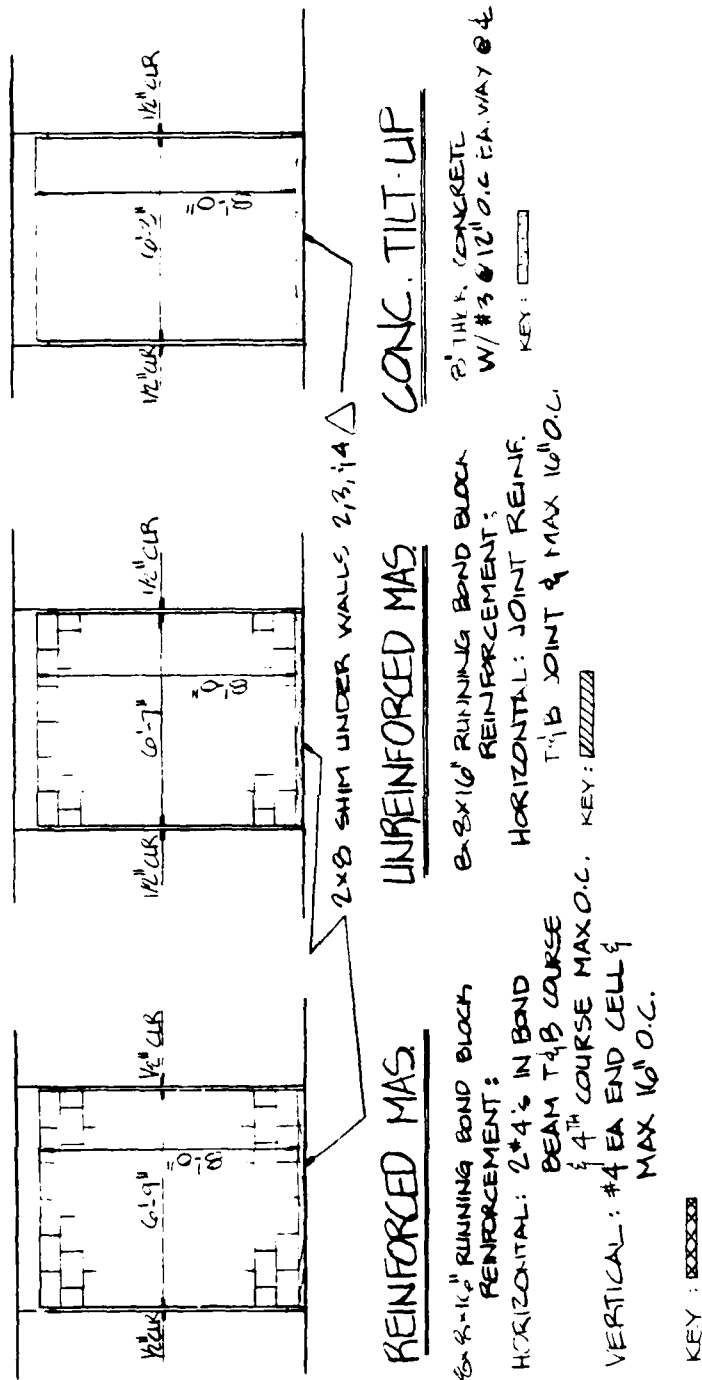 1/2" CLR
6'-9"
8'-0"
1/2" CLR
REINFORCED MAS.
8x8x16" RUNNING BOND BLOCK
REINFORCEMENT:
HORIZONTAL: 2 #4's IN BOND
BEAM T&B COURSE
& 4TH COURSE MAX O.C.
VERTICAL: #4 EA END CELL &
MAX 16" O.C.
KEY:
1/2" CLR
6'-7"
8'-0"
1/2" CLR
2x8 SHIM UNDER WALLS 2,3, & 4
UNREINFORCED MAS.
8x8x16" RUNNING BOND BLOCK
REINFORCEMENT:
HORIZONTAL: JOINT REINF.
T&B JOINT & MAX 16" O.C.
KEY:
1/2" CLR
8'-0"
1/2" CLR
CONC. TILT-UP
8" THK. CONCRETE
W/ #3 @ 12" O.C. EA. WAY @ ℄
KEY: